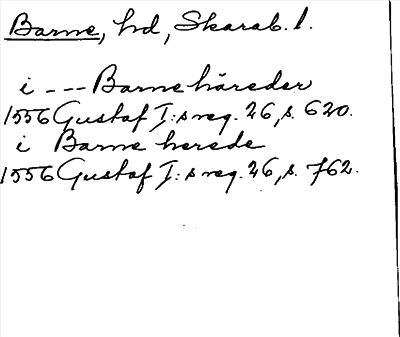 Barne, hd, Skarab. l.
i --- Barne häreder
1556 Gustaf I:s reg. 26, s. 620.
i Barne herede
1556 Gustaf I:s reg. 26, s. 762.